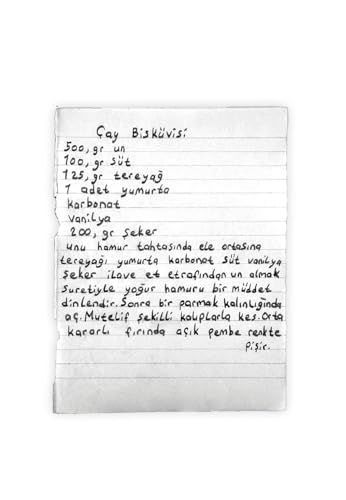 Çay Bisküvisi
500, gr un
100, gr süt
125, gr tereyağ
1 adet yumurta
karbonat
vanilya
200, gr şeker
unu hamur tahtasında ele ortasına
tereyağı yumurta karbonat süt vanilya
şeker ilave et etrafından un almak
suretiyle yoğur hamuru bir müddet
dinlendir. Sonra bir parmak kalınlığında
aç. Mutelif şekilli kalıplarla kes. Orta
kararlı fırında açık pembe renkte
pişir.